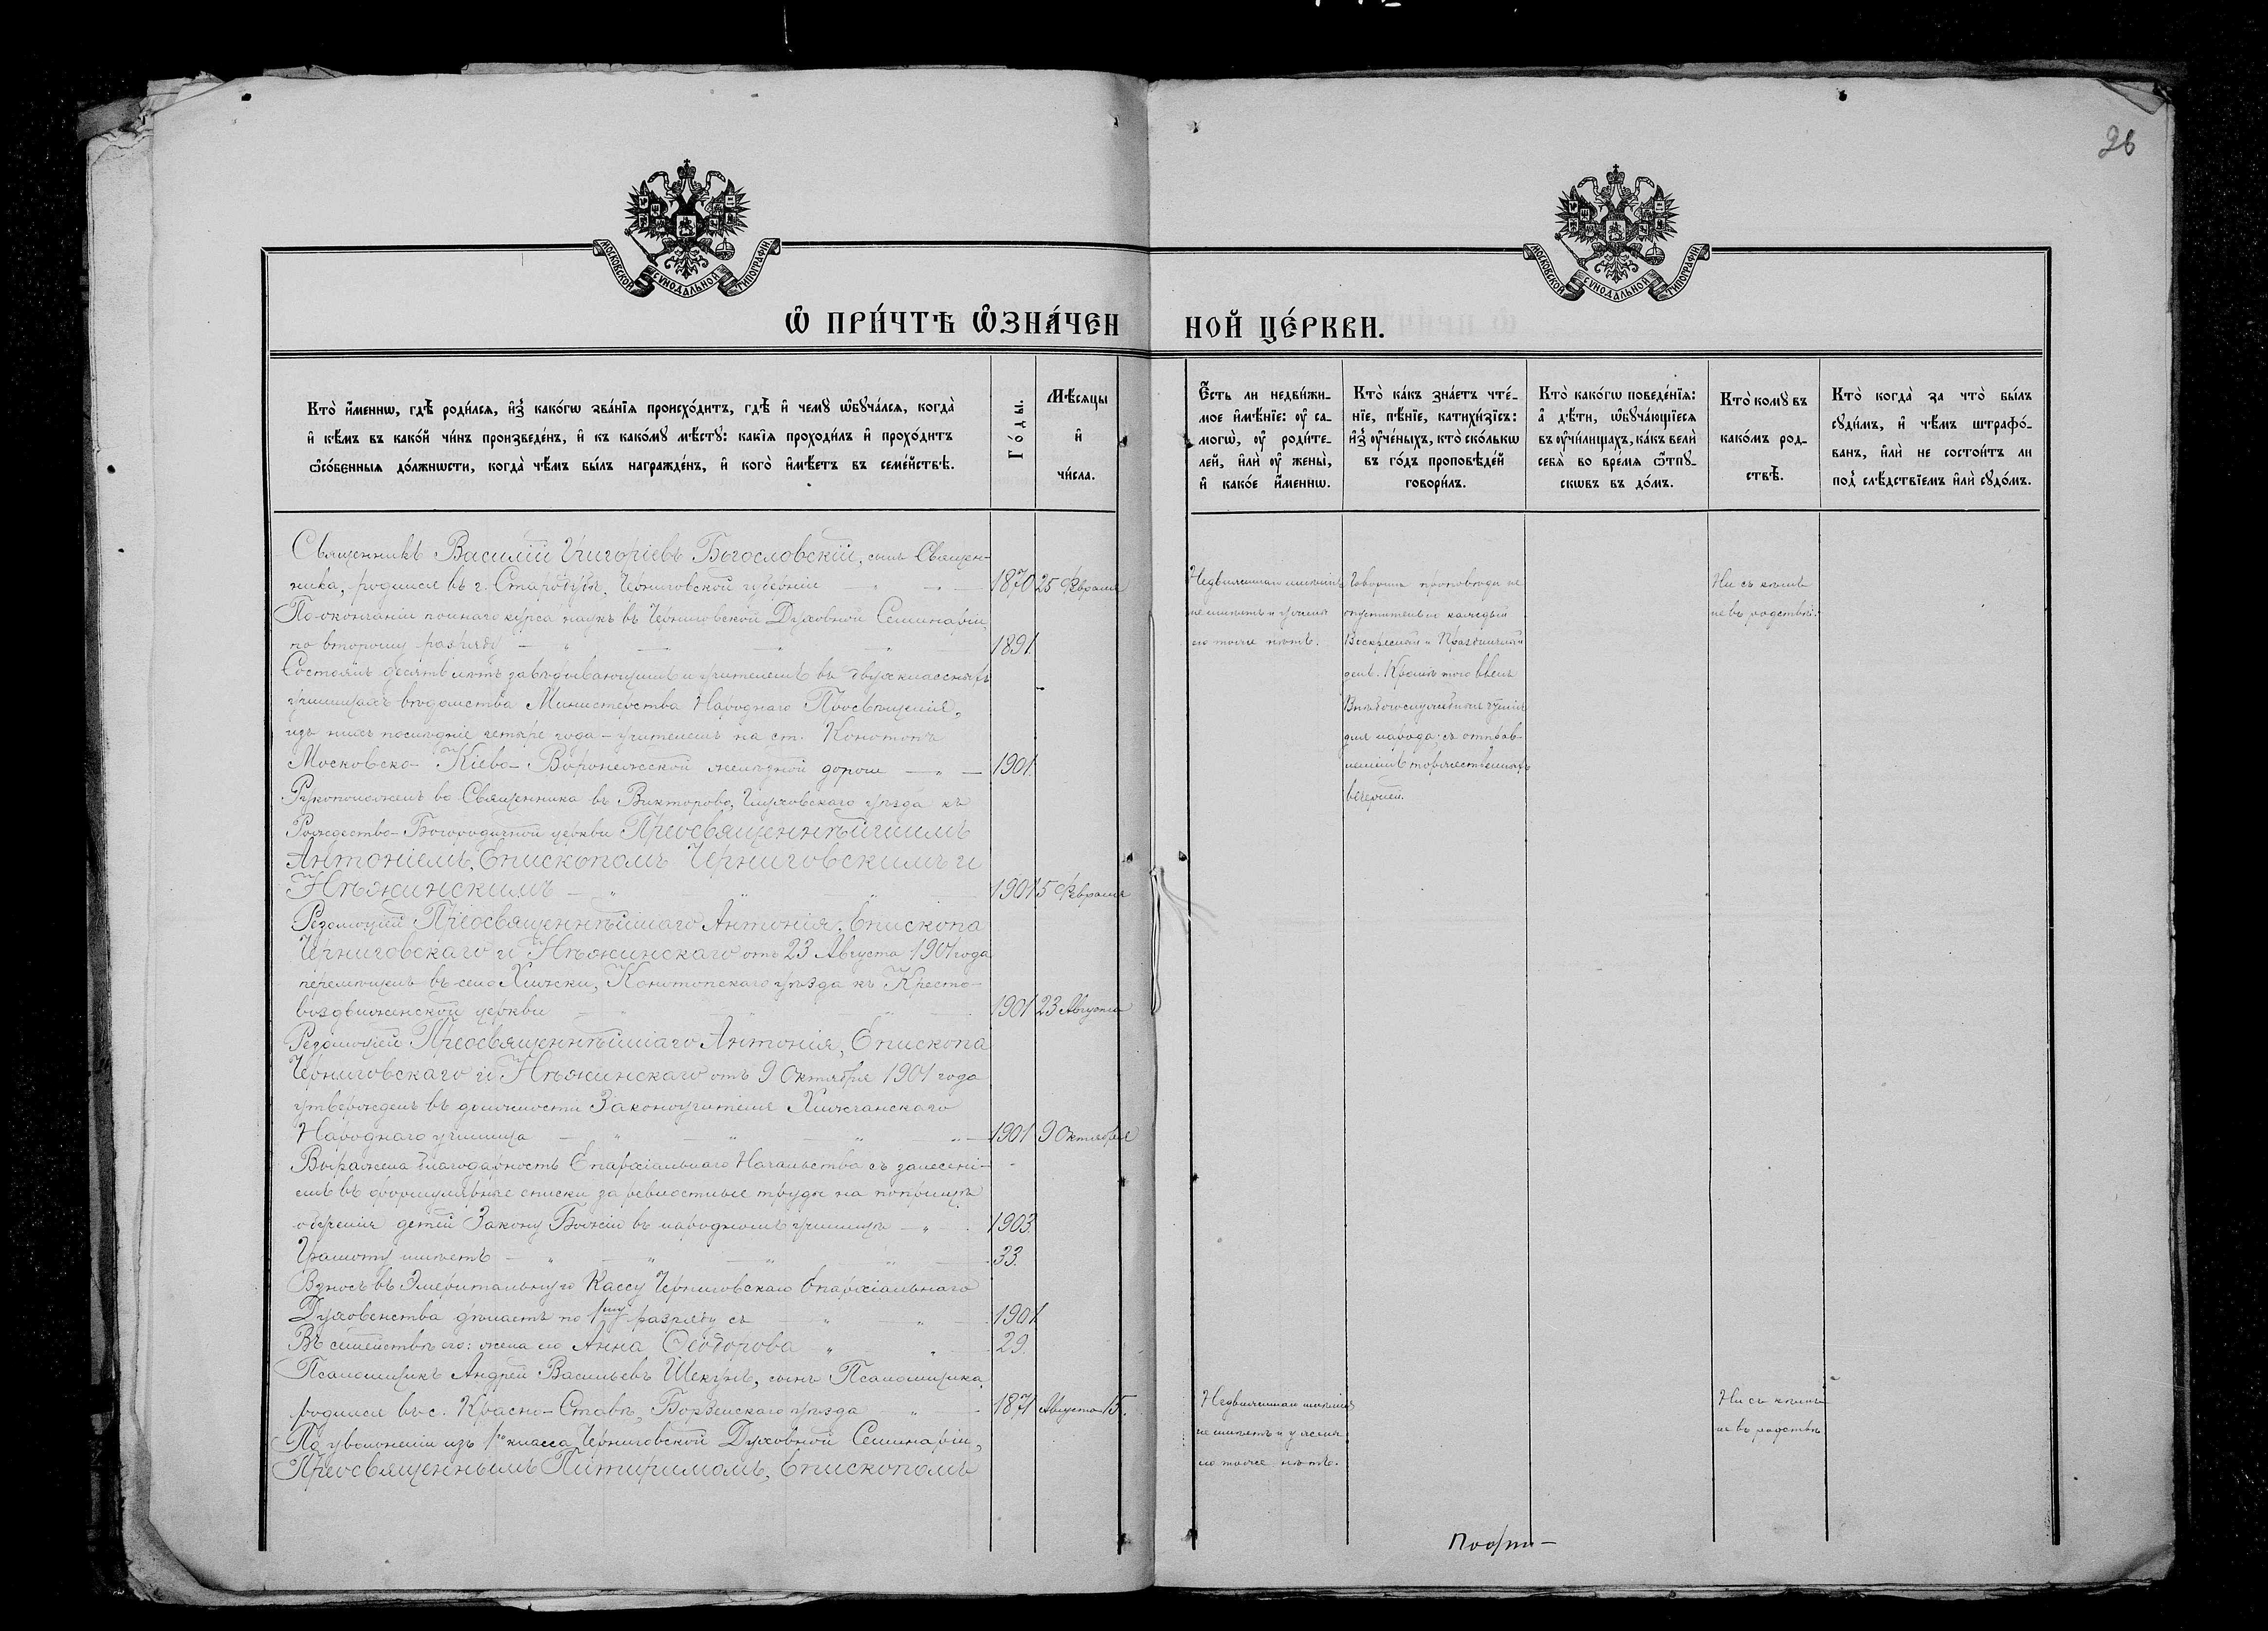 26
МОСКОВСКОЙ СѴНОДАЛЬНОЙ ТИПОГРАФІИ
МОСКОВСКОЙ СѴНОДАЛЬНОЙ ТИПОГРАФІИ
Ѽ ПРИ́ЧТѢ Ѽ҆ЗНА́ЧЕН
НОЙ ЦЕ́РКВИ.
Кто̀ и҆́меннѡ, гдѣ̀ роди́лсѧ, и҆з̾ како́гѡ зва́нїѧ происхо́дитъ, гдѣ̀ и҆ чемꙋ̀ ѡ҆бꙋча́лсѧ, когда̀
и҆ кѣ́мъ въ како́й чи́нъ произведе́нъ, и҆ къ како́мꙋ мѣ́стꙋ: какі̑ѧ проходи́лъ и҆ прохо́дитъ
ѻ҆со́бенныѧ до́лжнѡсти, когда̀ чѣ́мъ бы́лъ награжде́нъ, и҆ кого̀ и҆мѣ́етъ въ семе́йствѣ.
Го́ды.
Мѣ́сѧцы
и҆
чи́сла.
Священникъ Василій Григоріевъ Богословскій, сынъ Священ-
ника, родился въ г. Стародубѣ, Черниговской губерніи — „ — „ — 1870 25 Февраля
По окончаніи полнаго курса наукъ въ Черниговской Духовной Семинаріи,
по второму разряду — „ — „ — 1891.
Состоялъ десять лѣтъ завѣдывающимъ и учителемъ въ двухклассныхъ
училищахъ вѣдомства Министерства Народнаго Просвѣщенія,
изъ нихъ послѣдніе четыре года – учителемъ на ст. Конотопъ
Московско-Кіево-Воронежской желѣзной дороги — „ — 1901.
Рукоположенъ во Священника въ Викторово, Глуховскаго уѣзда къ
Рождество-Богородичной церкви Преосвященнѣйшимъ
Антоніемъ, Епископомъ Черниговскимъ и
Нѣжинскимъ — „ „ „ 1901 5 Февраля
Резолюціей Преосвященнѣйшаго Антонія, Епископа
Черниговскаго и Нѣжинскаго отъ 23 Августа 1901 года
перемѣщенъ въ село Хижки, Конотопскаго уѣзда къ Кресто-
воздвиженской церкви — „ „ „ 1901 23 Августа
Резолюціей Преосвященнѣйшаго Антонія, Епископа
Черниговскаго и Нѣжинскаго отъ 9 Октября 1901 года
утвержденъ въ должности Законоучителя Хижчанскаго
Народнаго училища — „ — „ — „ „ — 1901 9 Октября
Выражена благодарность Епархіальнаго Начальства съ занесені-
емъ въ формулярные списки за ревностные труды на поприщѣ
обученія детей Закону Божію въ народномъ училищѣ — „ 1903.
Грамоту имѣетъ — „ — „ — „ — 33.
Взносъ въ Эмеритальную Кассу Черниговскаго Епархіальнаго
Духовенства дѣлаетъ по 1му разряду съ — „ — „ 1901.
Въ семействѣ его: жена его Анна Ѳеодорова „ „ — 29.
Псаломщикъ Андрей Васильевъ Шекунъ, сынъ Псаломщика,
родился въ с. Красно-Ставѣ, Борзенскаго уѣзда — „ — 1871 Августа 15.
По увольненіи изъ 1го класса Черниговской Духовной Семинаріи,
Преосвященнымъ Питиримомъ, Епископомъ
Е҆́сть ли недви́жи-
мое и҆мѣ́нїе: ᲂу҆ са-
могѡ̀, ᲂу҆ роди́те-
лей, и҆лѝ ᲂу҆ жены̀,
и҆ како́е и҆́меннѡ.
Недвижимаго имѣнія
не имѣетъ и у жены
его тоже нѣтъ.
Недвижимаго имѣнія
не имѣетъ и у жены
его тоже нѣтъ.
Кто̀ ка́къ зна́етъ чте́-
нїе, пѣ́нїе, катихи́зїсъ:
и҆з̾ ᲂу҆че́ныхъ, кто̀ ско́лькѡ
въ го́дъ проповѣ́дей
говори́лъ.
Говоритъ проповѣди не
опустительно каждый
Воскресный и Праздничный
день. Кромѣ того ввелъ
Внѣбогослужебныя чтенія
для народа съ отправ-
леніемъ торжественныхъ
вечерней.
Кто̀ како́гѡ поведе́нїѧ:
а҆ дѣ́ти, ѡ҆бꙋча́ющїесѧ
въ ᲂу҆чи́лищахъ, ка́къ велѝ
себѧ̀ во вре́мѧ ѿпꙋ-
скѡвъ въ до́мъ.
Кто̀ комꙋ̀ въ
како́мъ род-
ствѣ̀.
Ни съ кѣмъ
не въ родствѣ.
Ни съ кѣмъ
не въ родствѣ
Кто̀ когда̀ за что̀ бы́лъ
сꙋди́мъ, и҆ чѣ́мъ штрафо́-
ванъ, и҆лѝ не состои́тъ ли
под̾ слѣ́дствїемъ и҆лѝ сꙋдо́мъ.